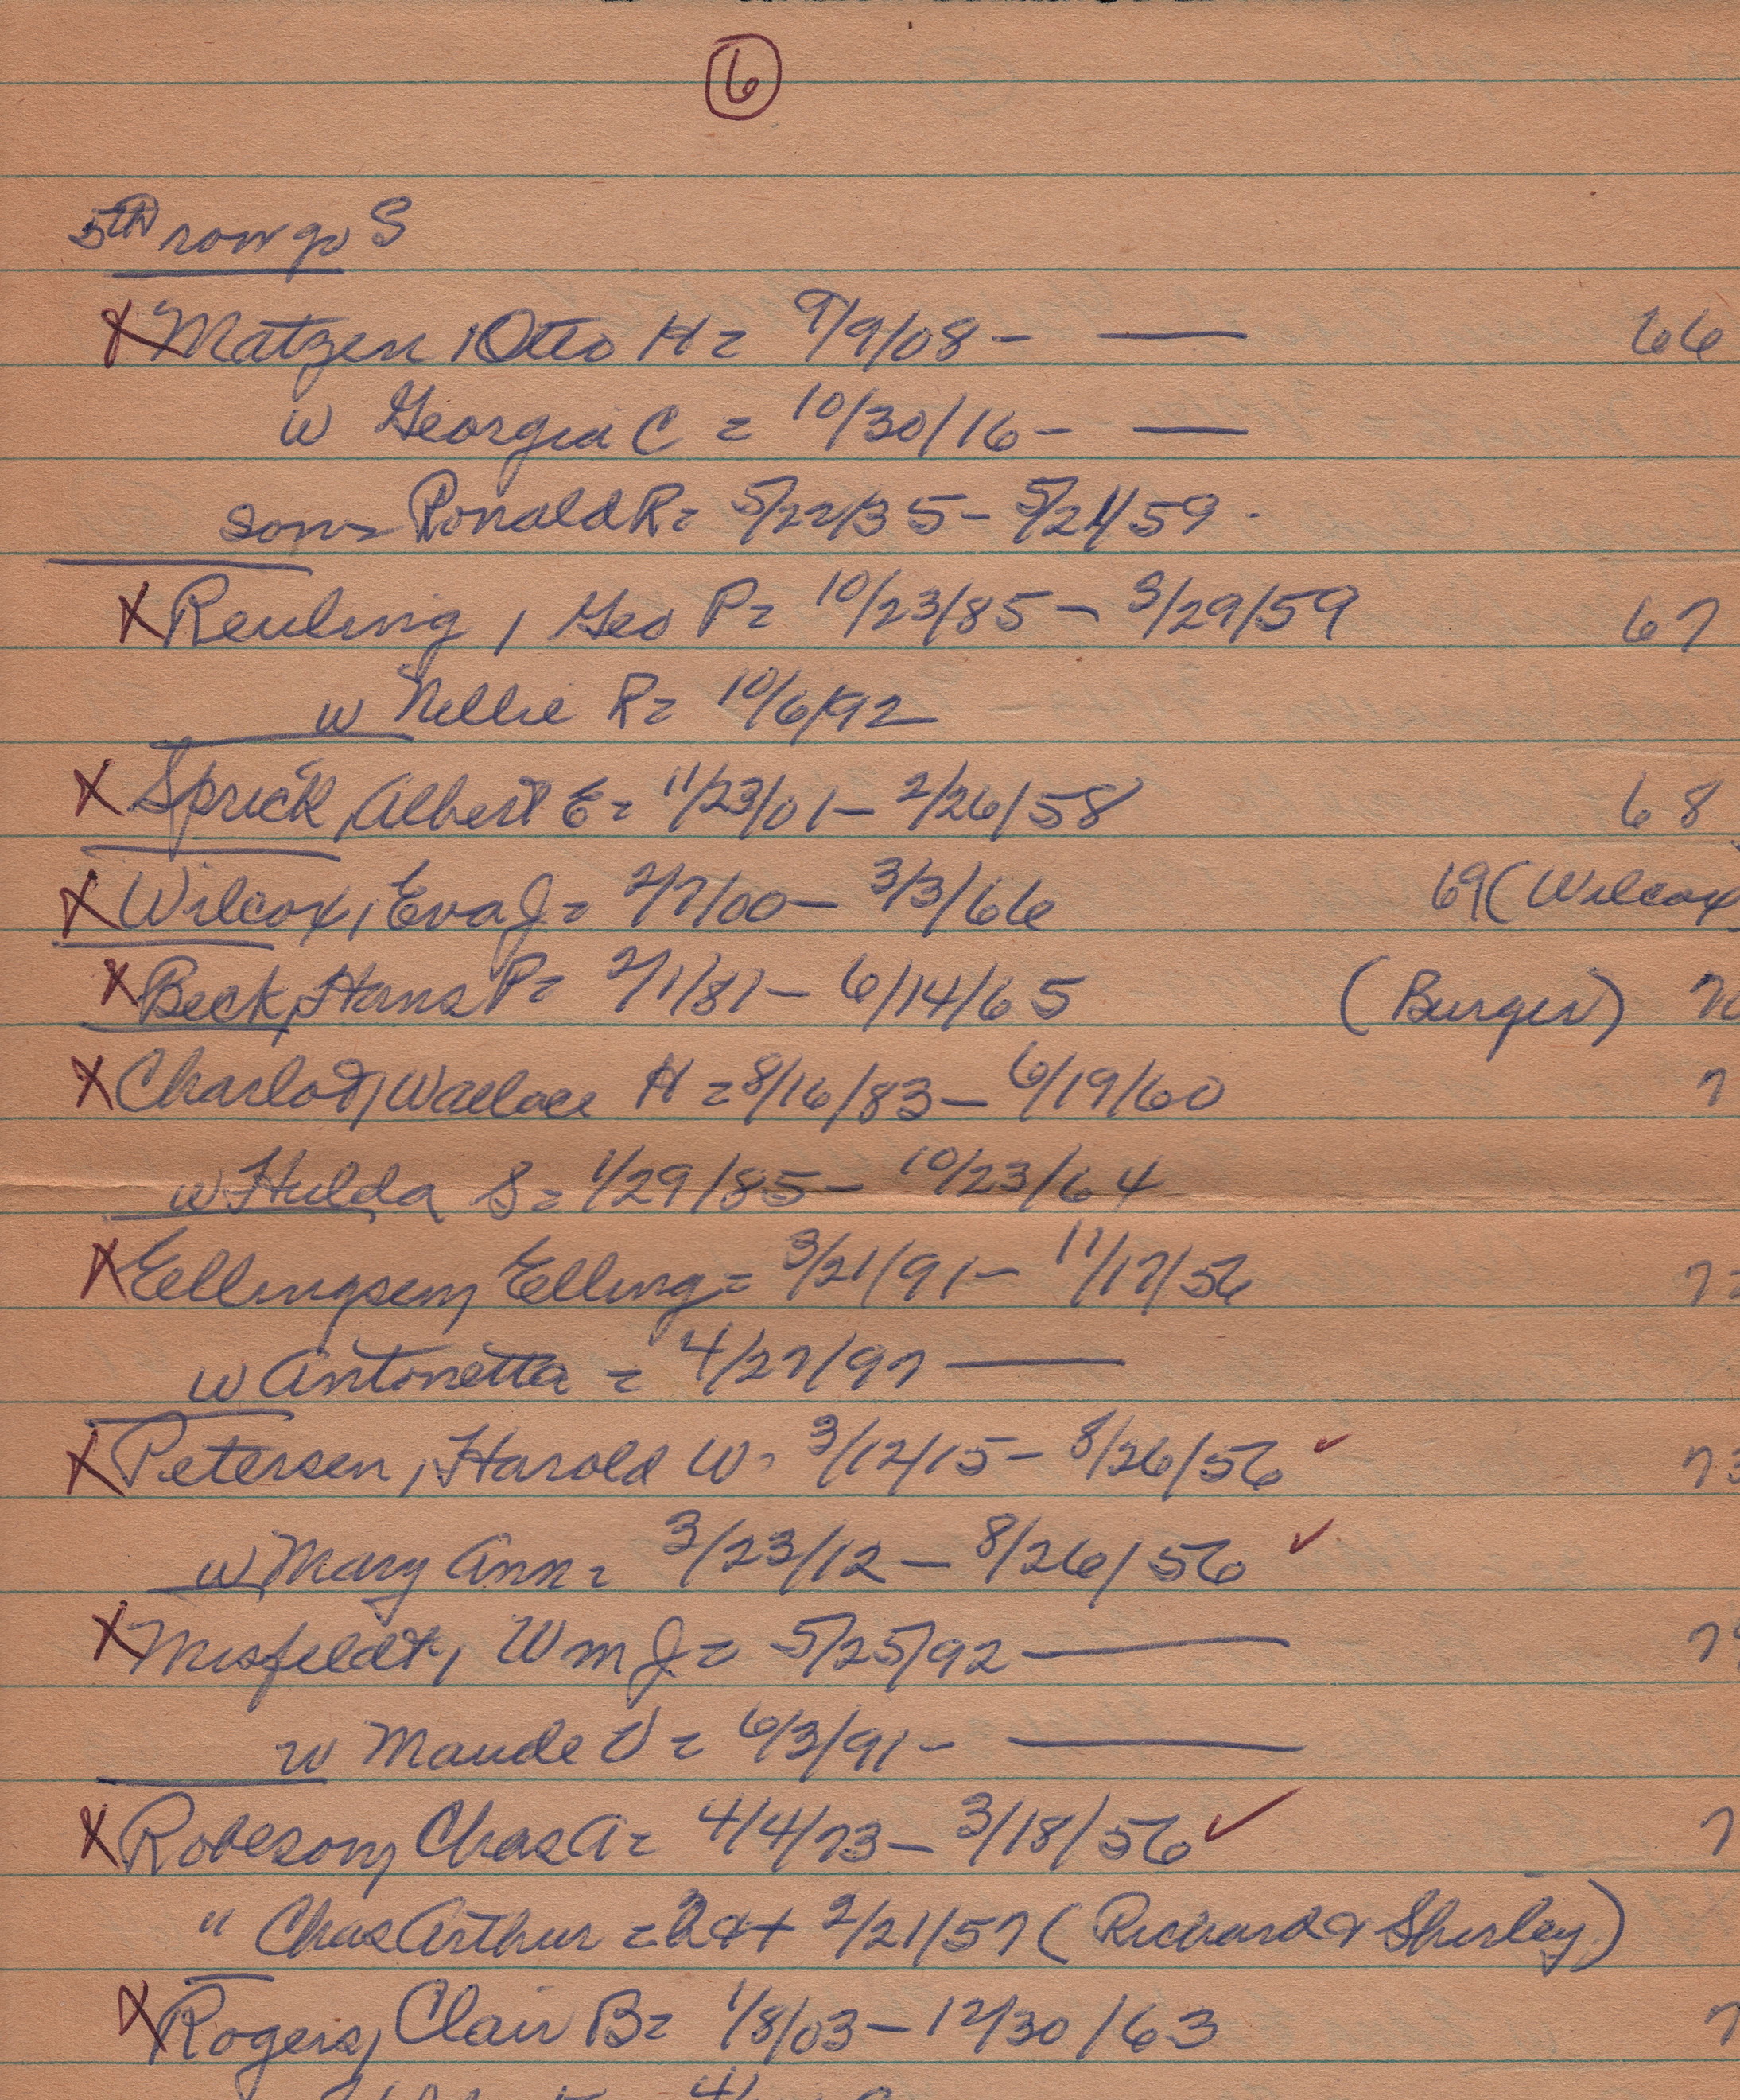 6
5th row go S
X Matzen, Otto H = 9/9/08 - — 66
w Georgia C = 10/30/16 - —
son = Ronald R = 5/22/35 - 5/24/59 -
X Reuling, Geo P = 10/23/85 - 3/29/59 67
w Nellie R = 10/6/92
X Sprick, Albert E = 11/23/01 - 2/26/58 68
X Wilcox, Eva J = 2/7/00 - 3/3/66 69 (Wilcox)
X Beck, Hans P = 2/1/81 - 6/14/65 (Burger) 70
X Charlot, Wallace H = 8/16/83 - 6/19/60 7
w Hulda S = 1/29/85 - 10/23/64
X Ellingsen, Elling = 3/21/91 - 11/17/56 72
w Antonetta = 4/27/97 —
X Petersen, Harold W = 3/12/15 - 8/26/56 ✓ 73
w Mary Ann = 3/23/12 - 8/26/56 ✓
X Misfeldt, Wm J = 5/25/92 — 7
w Maude V = 6/3/91 - —
X Robeson, Chas A = 4/4/73 - 3/18/56 ✓ 7
" Chas Arthur = 2/21/57 (Richard & Shirley)
X Rogers, Clair B = 1/8/03 - 12/30/63 7